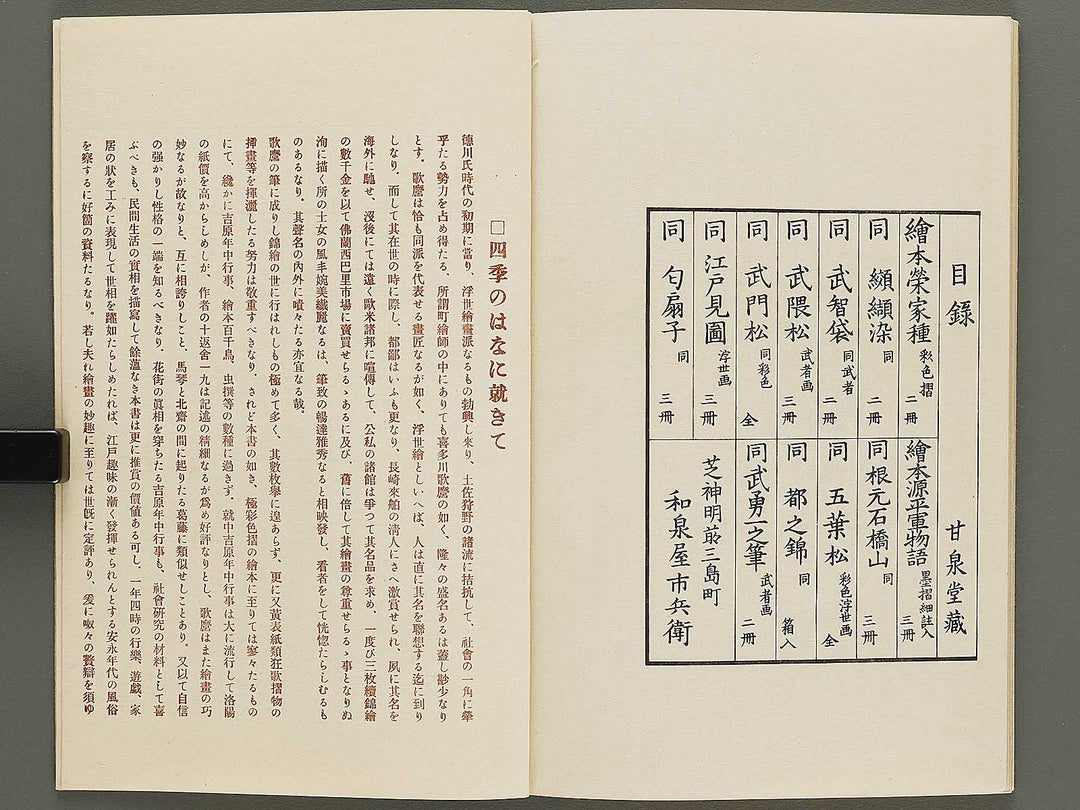 目録　甘泉堂藏
繪本榮家種 彩色摺 二冊
同 纐纈染 同 二冊
同 武智袋 同武者 二冊
同 武隈松 武者画 三冊
同 武門松 同彩色 全
同 江戸見圖 浮世画 三冊
同 匂扇子 同 三冊
繪本源平軍物語 墨摺細註入 三冊
同根元石橋山 同 三冊
同 五葉松 彩色浮世画 全
同 都之錦 同 箱入
同武勇一之筆 武者画 二冊
芝神明前三島町
和泉屋市兵衛
□四季のはなに就きて
德川氏時代の初期に當り、浮世繪畫派なるもの勃興し來り、土佐狩野の諸流に拮抗して、社會の一角に犖
乎たる勢力を占め得たる、所謂町繪師の中にありても喜多川歌麿の如く、隆々の盛名あるは蓋し尠少なり
とす。歌麿は恰も同派を代表せる畫匠なるが如く、浮世繪としいへば、人は直に其名を聯想する迄に到り
しなり、而して其在世の時に際し、都鄙はいふも更なり、長崎來舶の淸人にさへ激賞せられ、夙に其名を
海外に馳せ、沒後にては遠く歐米諸邦に喧傳して、公私の諸館は爭つて其名品を求め、一度び三枚續錦繪
の數千金を以て佛蘭西巴里市場に賣買せらるゝあるに及び、舊に倍して其繪畫の尊重せらるゝ事となりぬ
洵に描く所の士女の風丰婉美纖麗なるは、筆致の暢達雅秀なると相映發し、看者をして恍惚たらしむるも
のあるなり。其聲名の內外に嘖々たる亦宜なる哉。
歌麿の筆に成りし錦繪の世に行はれしもの極めて多く、其數枚擧に遑あらず、更に又黃表紙類狂歌摺物の
揷畫等を揮灑したる努力は敬重すべきなり。されど本書の如き、極彩色摺の繪本に至りては寥々たるもの
にて、纔かに吉原年中行事、繪本百千鳥、虫撰等の數種に過ぎず。就中吉原年中行事は大に流行して洛陽
の紙價を高からしめしが、作者の十返舍一九は記述の精細なるが爲め好評なりとし、歌麿はまた繪畫の巧
妙なるが故なりと、互に相誇りしこと、馬琴と北齋の間に起りたる葛藤に類似せしことあり。又以て自信
の强かりし性格の一端を知るべきなり、花街の眞相を穿ちたる吉原年中行事も、社會硏究の材料として喜
ぶべきも、民間生活の實相を描寫して餘蘊なき本書は更に推賞の價値ある可し、一年四時の行樂、遊戲、家
居の狀を工みに表現して世相を躍如たらしめたれば、江戶趣味の漸く發揮せられんとする安永年代の風俗
を察するに好箇の資料たるなり。若し夫れ繪畫の妙趣に至りては世旣に定評あり、爰に呶々の贅辯を須ゆ